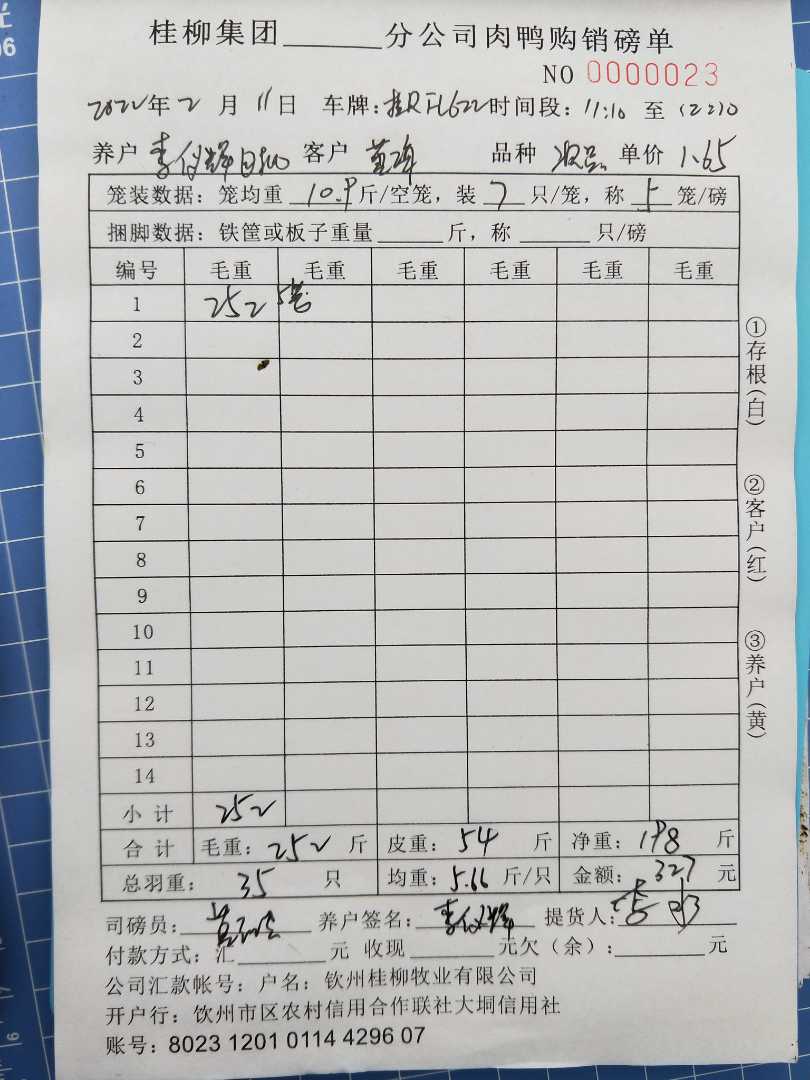 桂柳集团______分公司肉鸭购销磅单
NO 0000023
2022年2月11日 车牌:桂RFL622 时间段:11:10 至
养户 李仪辉 客户 品种 次品 单价 1.65
笼装数据:笼均重 10.9 斤/空笼,装 7 只/笼,称 5 笼/磅
捆脚数据:铁筐或板子重量______斤,称______只/磅
编号 毛重 毛重 毛重 毛重 毛重 毛重
1 252 5笼
2
3
4
5
6
7
8
9
10
11
12
13
14
小计 252
合计 毛重:252 斤 皮重:54 斤 净重:198 斤
总羽重:35 只 均重:5.66 斤/只 金额:327 元
司磅员: 养户签名:李仪辉 提货人:李
付款方式:汇______元 收现______元欠(余):______元
公司汇款帐号:户名:钦州桂柳牧业有限公司
开户行:饮州市区农村信用合作联社大垌信用社
账号:8023 1201 0114 4296 07
①存根(白)
②客户(红)
③养户(黄)